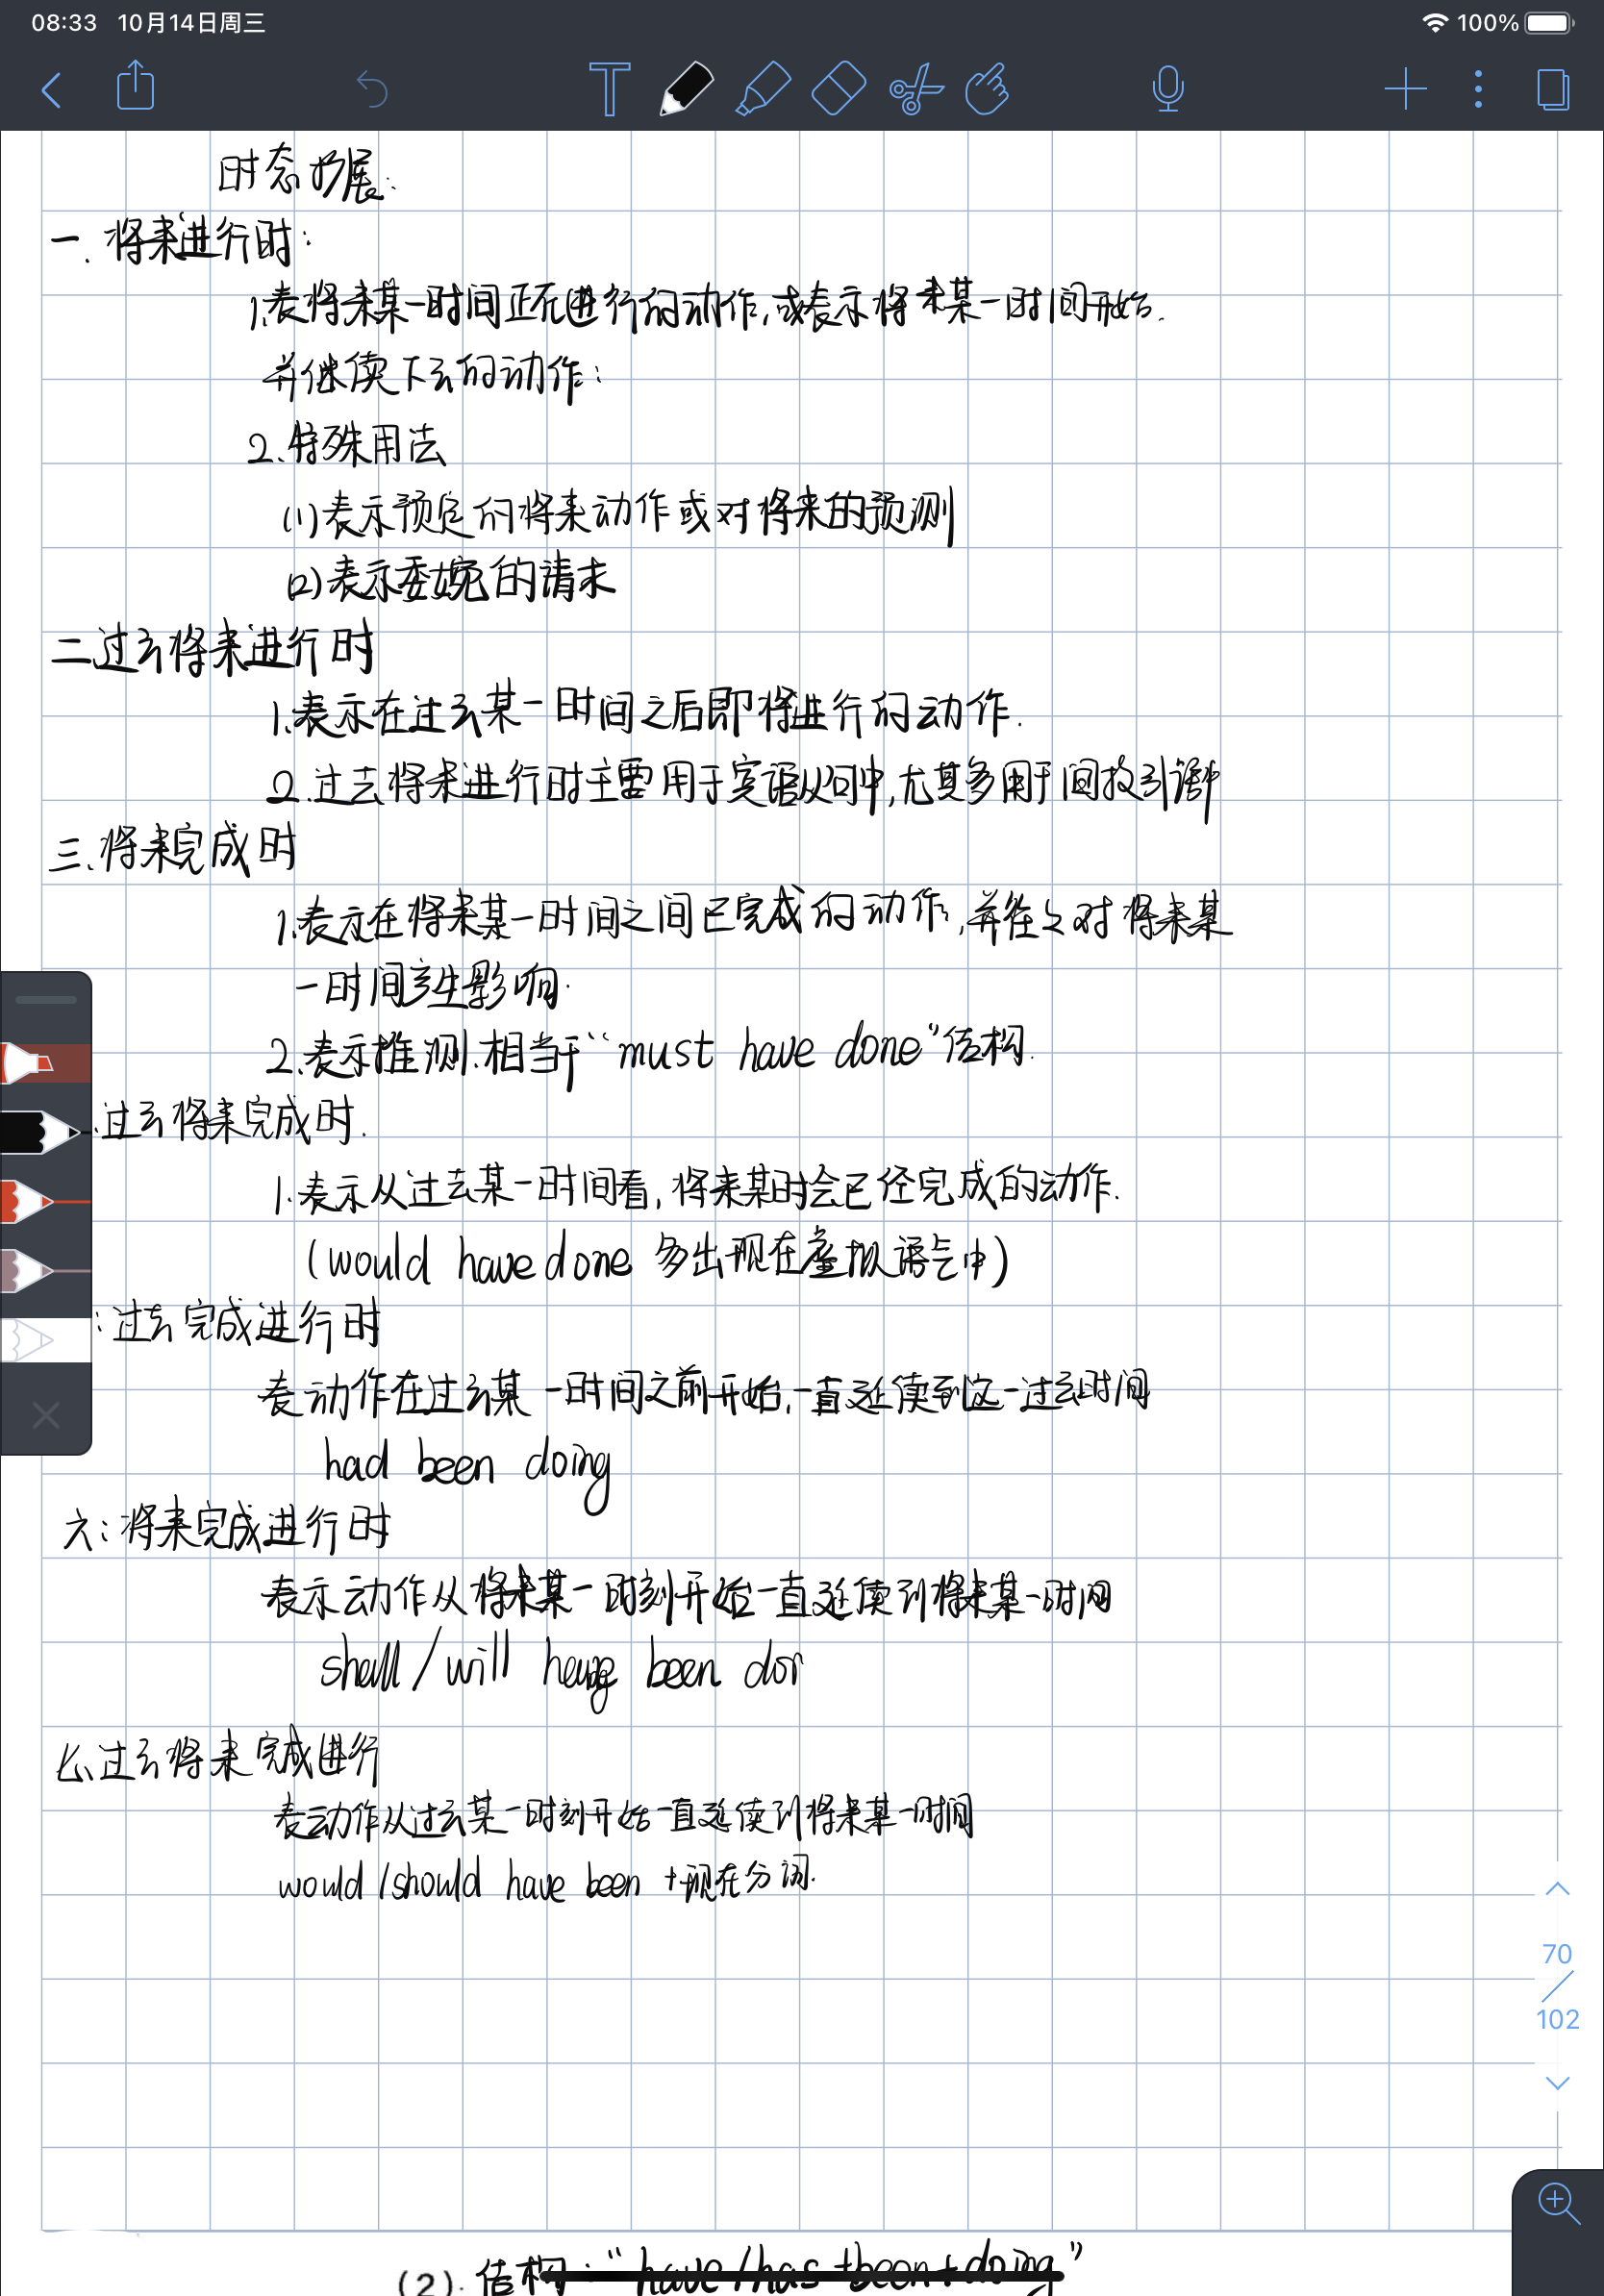 08:33 10月14日周三
100%
时态扩展:
一.将来进行时:
1.表将来某一时间正在进行的动作,或表示将来某一时间开始.
并继续下去的动作:
2.特殊用法
(1)表示预定的将来动作或对将来的预测
(2)表示委婉的请求
二.过去将来进行时
1.表示在过去某一时间之后即将进行的动作.
2.过去将来进行时主要用于宾语从句中,尤其多用于间接引语中
三.将来完成时
1.表示在将来某一时间之间已完成的动作,并往往对将来某
一时间产生影响.
2.表示推测.相当于“must have done”结构.
.过去将来完成时.
1.表示从过去某一时间看,将来某时会已经完成的动作.
(would have done 多出现在虚拟语气中)
:过去完成进行时
表动作在过去某一时间之前开始,一直延续到这一过去时间
had been doing
六:将来完成进行时
表示动作从将来某一时刻开始一直延续到将来某一时间
shall/will been
七.过去将来完成进行
表动作从过去某一时刻开始一直延续到将来某一时间
would/should have been +现在分词.
70
/
102
(2).结构:“have/has+been+doing”